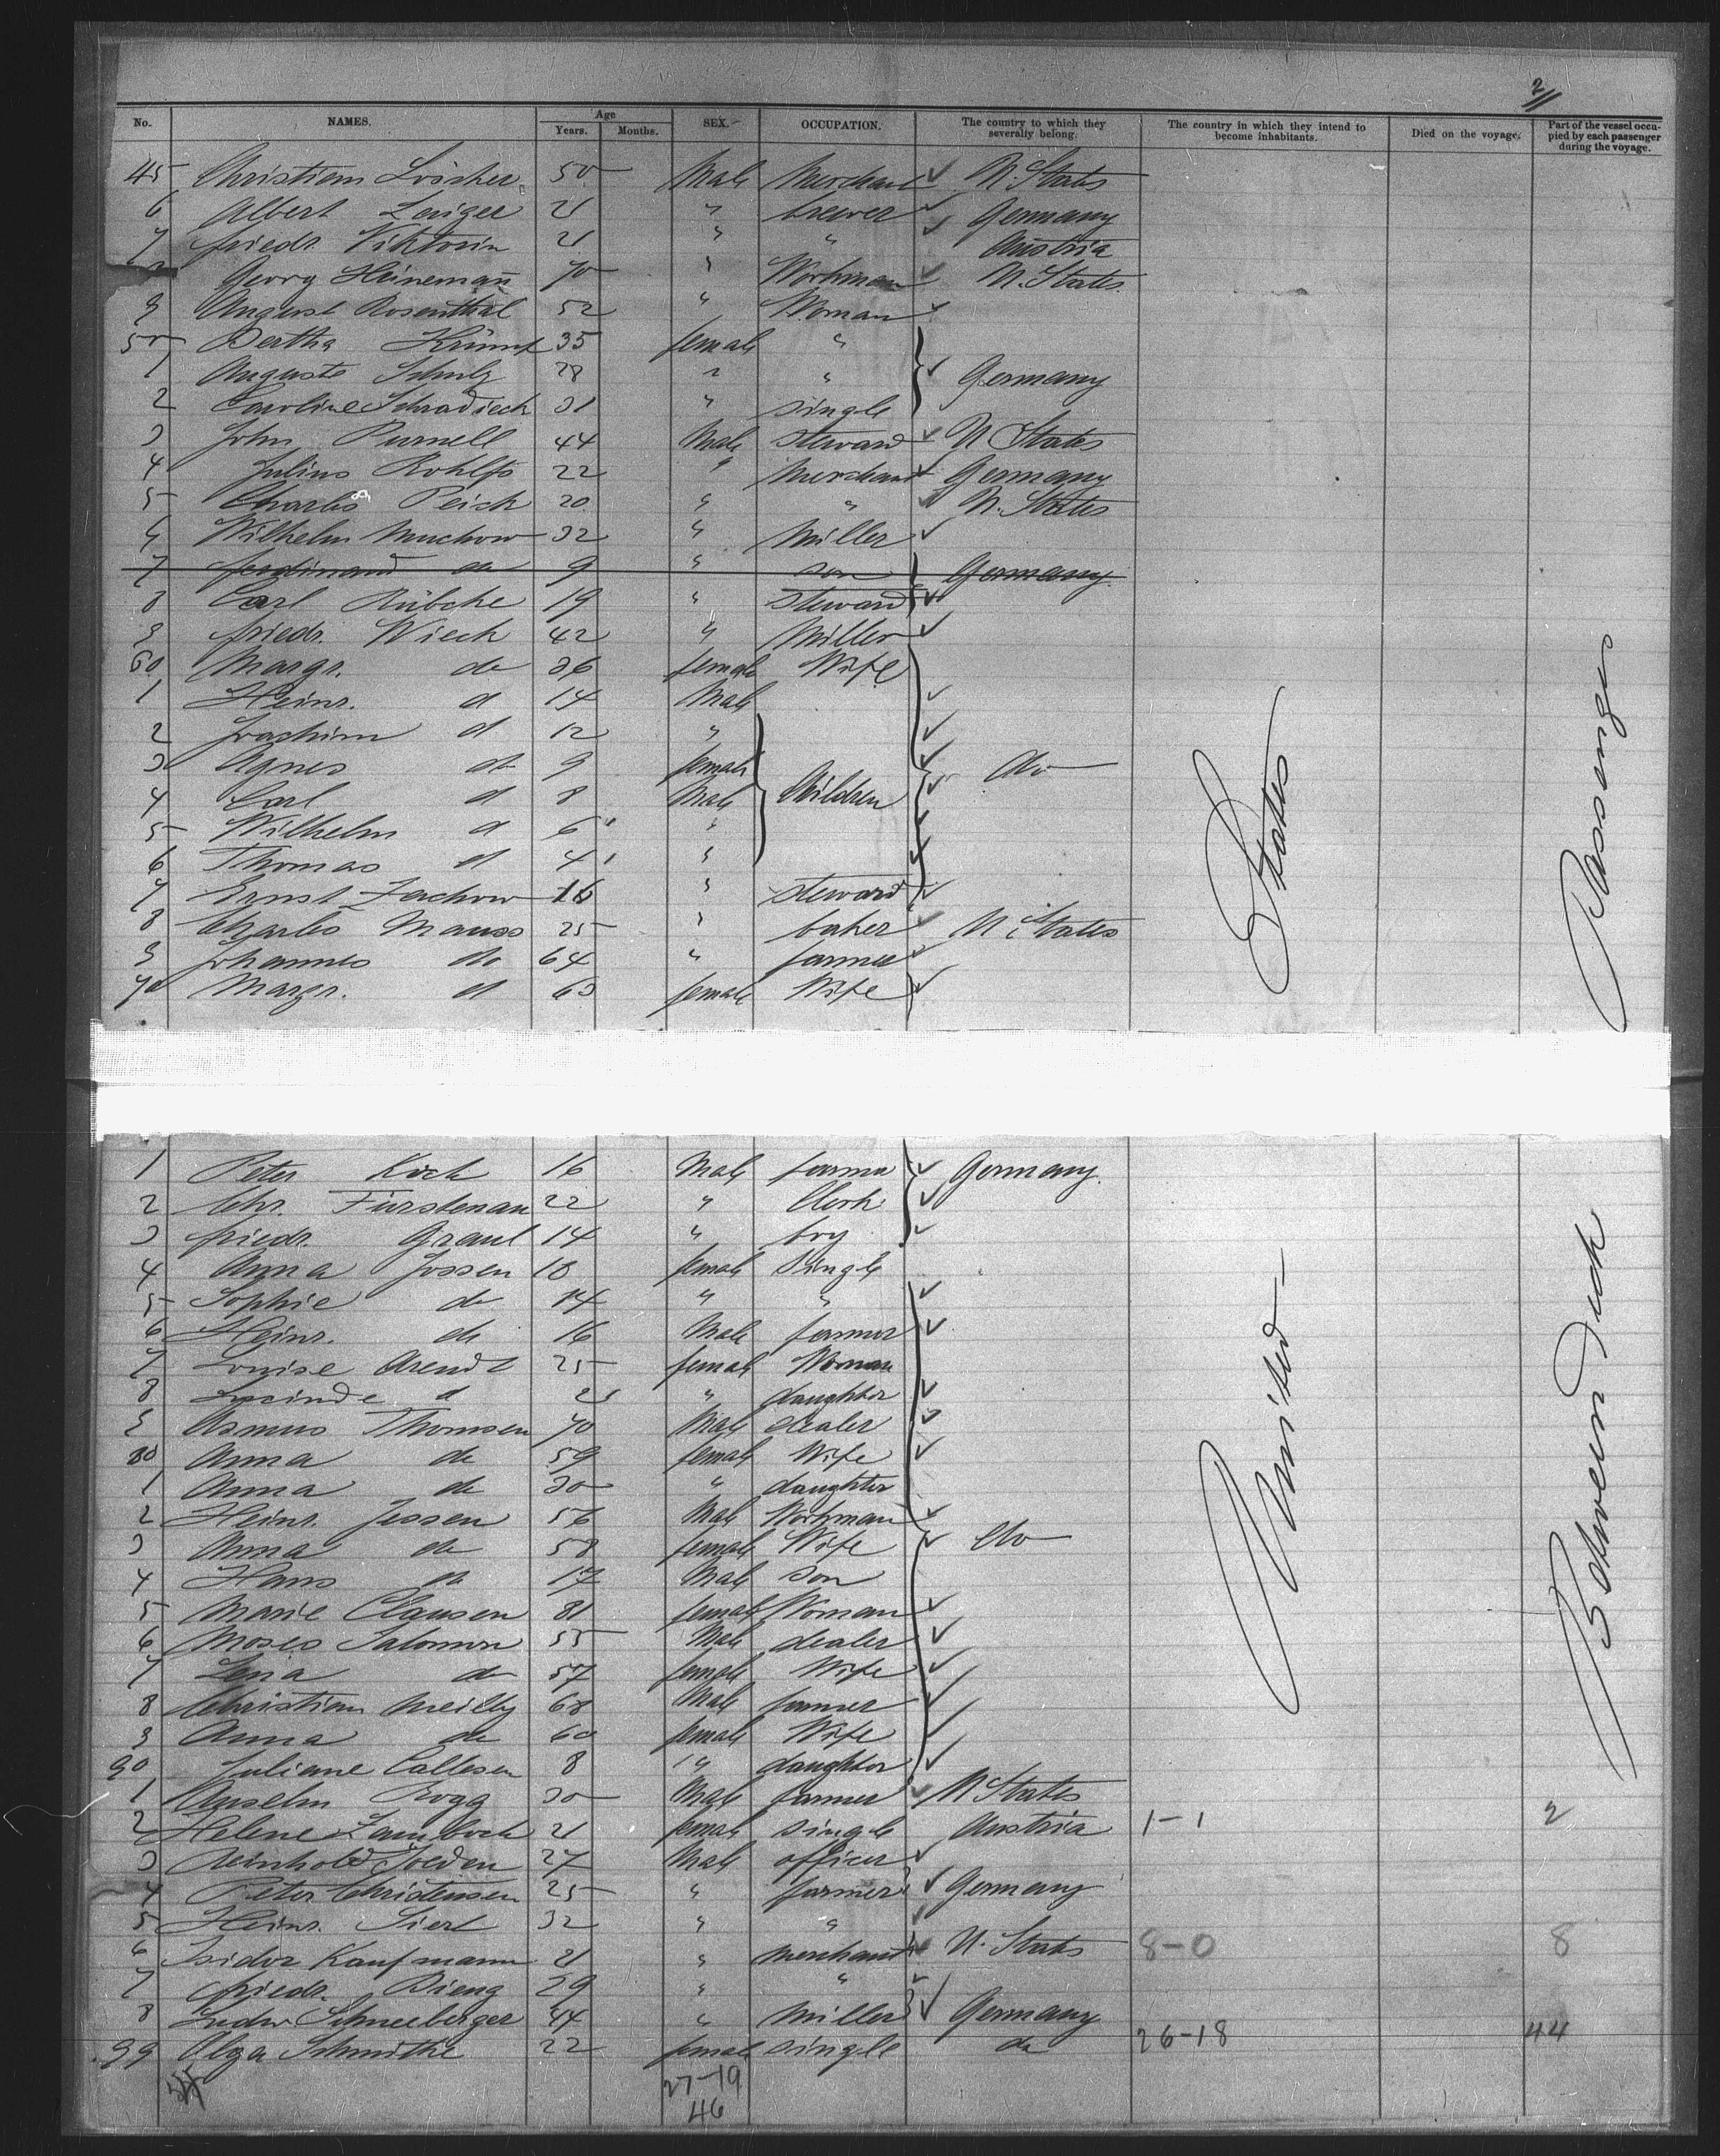 2/11
No. NAMES. Age Years. Months. SEX. OCCUPATION. The country to which they severally belong. The country in which they intend to become inhabitants. Died on the voyage. Part of the vessel occupied by each passenger during the voyage.
45 Christian Löscher 50 Male Merchant U. States
6 Albert 21 " brewer Germany
7 friedr. Viktorin 21 " " Austria
Georg Heinemañ 70 " Workman U. States
9 August Rosenthal 52 " Woman
50 Bertha 35 female "
1 Auguste Schulz 28 " " Germany
2 Caroline Schradieck 31 " single
3 John Purnell 44 Male steward U States
4 Julius Rohlfs 22 " Merchant Germany
5 Charles Peich 20 " " U. States
6 Wilhelm Muchow 32 " Miller
7 ferdinand do 9 " son Germany
8 Carl Rübcke 19 " steward
9 friedr. Wieck 42 " Miller
60 Margr. do 36 female Wife
1 Heinr. d 14 Male
2 Joachim d 12 "
3 Agnes do 9 female do
4 Carl d 8 Male Children
5 Wilhelm d 6 "
6 Thomas d 4 "
7 Ernst Zachow 16 " steward
8 Charles Mauss 25 " baker U States
9 Johannes do 64 " farmer
70 Margr. d 63 female Wife
1 Peter Koch 16 Male farmer Germany.
2 Chr. Fürstenau 22 " Clerk
3 friedr. Graul 14 " boy
4 Anna Jossen 18 female Single
5 Sophie do 14 " "
6 Heinr. do 16 Male farmer
7 Louise Arendt 25 female Woman
8 Lucinde d 2 " daughter
9 Asmus Thomsen 70 Male dealer
80 Anna do 59 female Wife
1 Anna do 30 " daughter
2 Heinr. Jessen 56 Male Workman
3 Anna do 58 female Wife do
4 Hans do 17 Male son
5 Marie Clausen 81 female Woman
6 Moses Salomon 55 Male dealer
7 Lena do 57 female Wife
8 Christian 68 Male farmer
9 Anna do 60 female Wife
90 Juliane Callesen 8 " daughter
1 Anselm Rogg 30 Male farmer U States
2 Helene 21 female single Austria 1-1 2
3 Reinhold 27 Male officer
4 Peter Christensen 25 " farmer Germany
5 Heinr. Sierl 32 " "
6 Isidor Kaufmann 21 " merchant U. States 8-0 8
7 friedr. Dieng 29 " "
8 Ludw Schneeberger 44 " Miller Germany
99 Olga Schmithe 22 female single do 26-18 44
27-19
46
United States
Between Deck Passenger